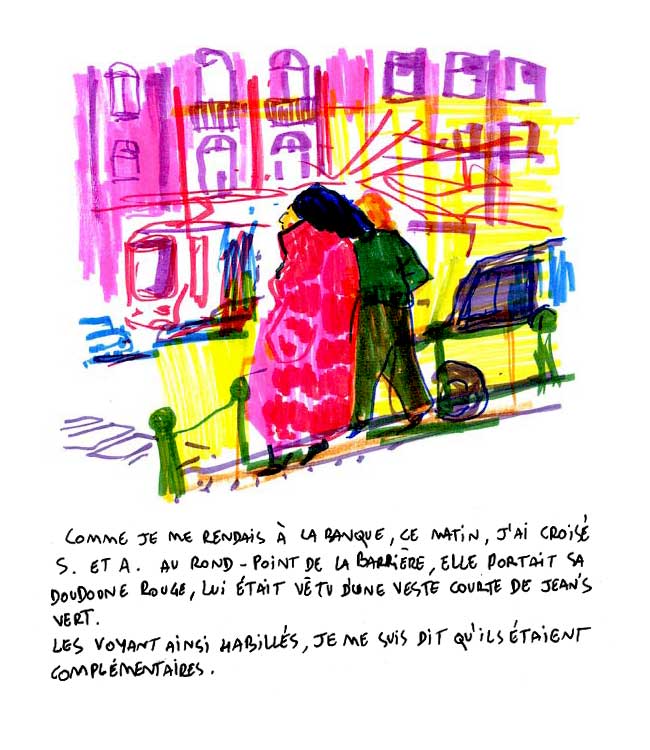 COMME JE ME RENDAIS À LA BANQUE, CE MATIN, J'AI CROISÉ
S. ET A. AU ROND-POINT DE LA BARRIÈRE, ELLE PORTAIT SA
DOUDOUNE ROUGE, LUI ÉTAIT VÊTU D'UNE VESTE COURTE DE JEAN'S
VERT.
LES VOYANT AINSI HABILLÉS, JE ME SUIS DIT QU'ILS ÉTAIENT
COMPLÉMENTAIRES.